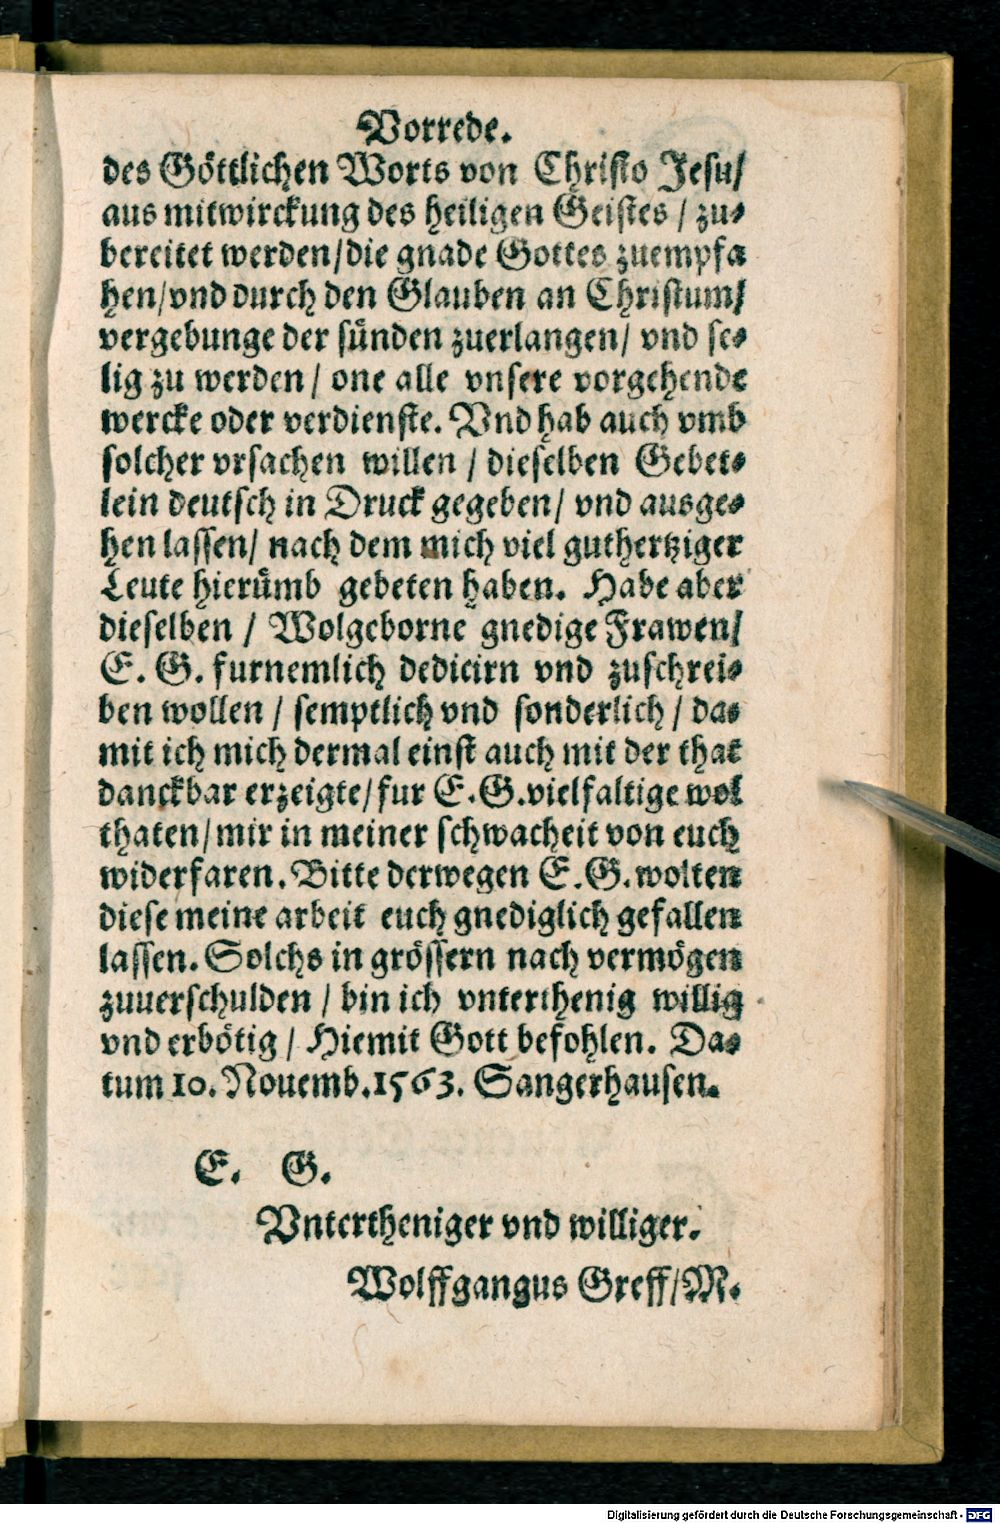 Vorrede.
des Göttlichen Worts von Christo Jesu/
aus mitwirckung des heiligen Geistes / zu⸗
bereitet werden/die gnade Gottes zuempfa
hen/vnd durch den Glauben an Christum/
vergebunge der sünden zuerlangen/ vnd se⸗
lig zu werden / one alle vnsere vorgehende
wercke oder verdienste. Vnd hab auch vmb
solcher vrsachen willen / dieselben Gebet⸗
lein deutsch in Druck gegeben/ vnd ausge⸗
hen lassen/ nach dem mich viel guthertziger
Leute hierümb gebeten haben. Habe aber
dieselben / Wolgeborne gnedige Frawen/
E. G. furnemlich dedicirn vnd zuschrei⸗
ben wollen / semptlich vnd sonderlich / da⸗
mit ich mich dermal einst auch mit der that
danckbar erzeigte/fur E.G.vielfaltige wol
thaten/mir in meiner schwacheit von euch
widerfaren. Bitte derwegen E.G. wolten
diese meine arbeit euch gnediglich gefallen
lassen. Solchs in grössern nach vermögen
zuuerschulden / bin ich vnterthenig willig
vnd erbötig / Hiemit Gott befohlen. Da⸗
tum 10. Nouemb.1563. Sangerhausen.
E. G.
Vntertheniger vnd williger.
Wolffgangus Greff/M.
Digitalisierung gefördert durch die Deutsche Forschungsgemeinschaft - DFG